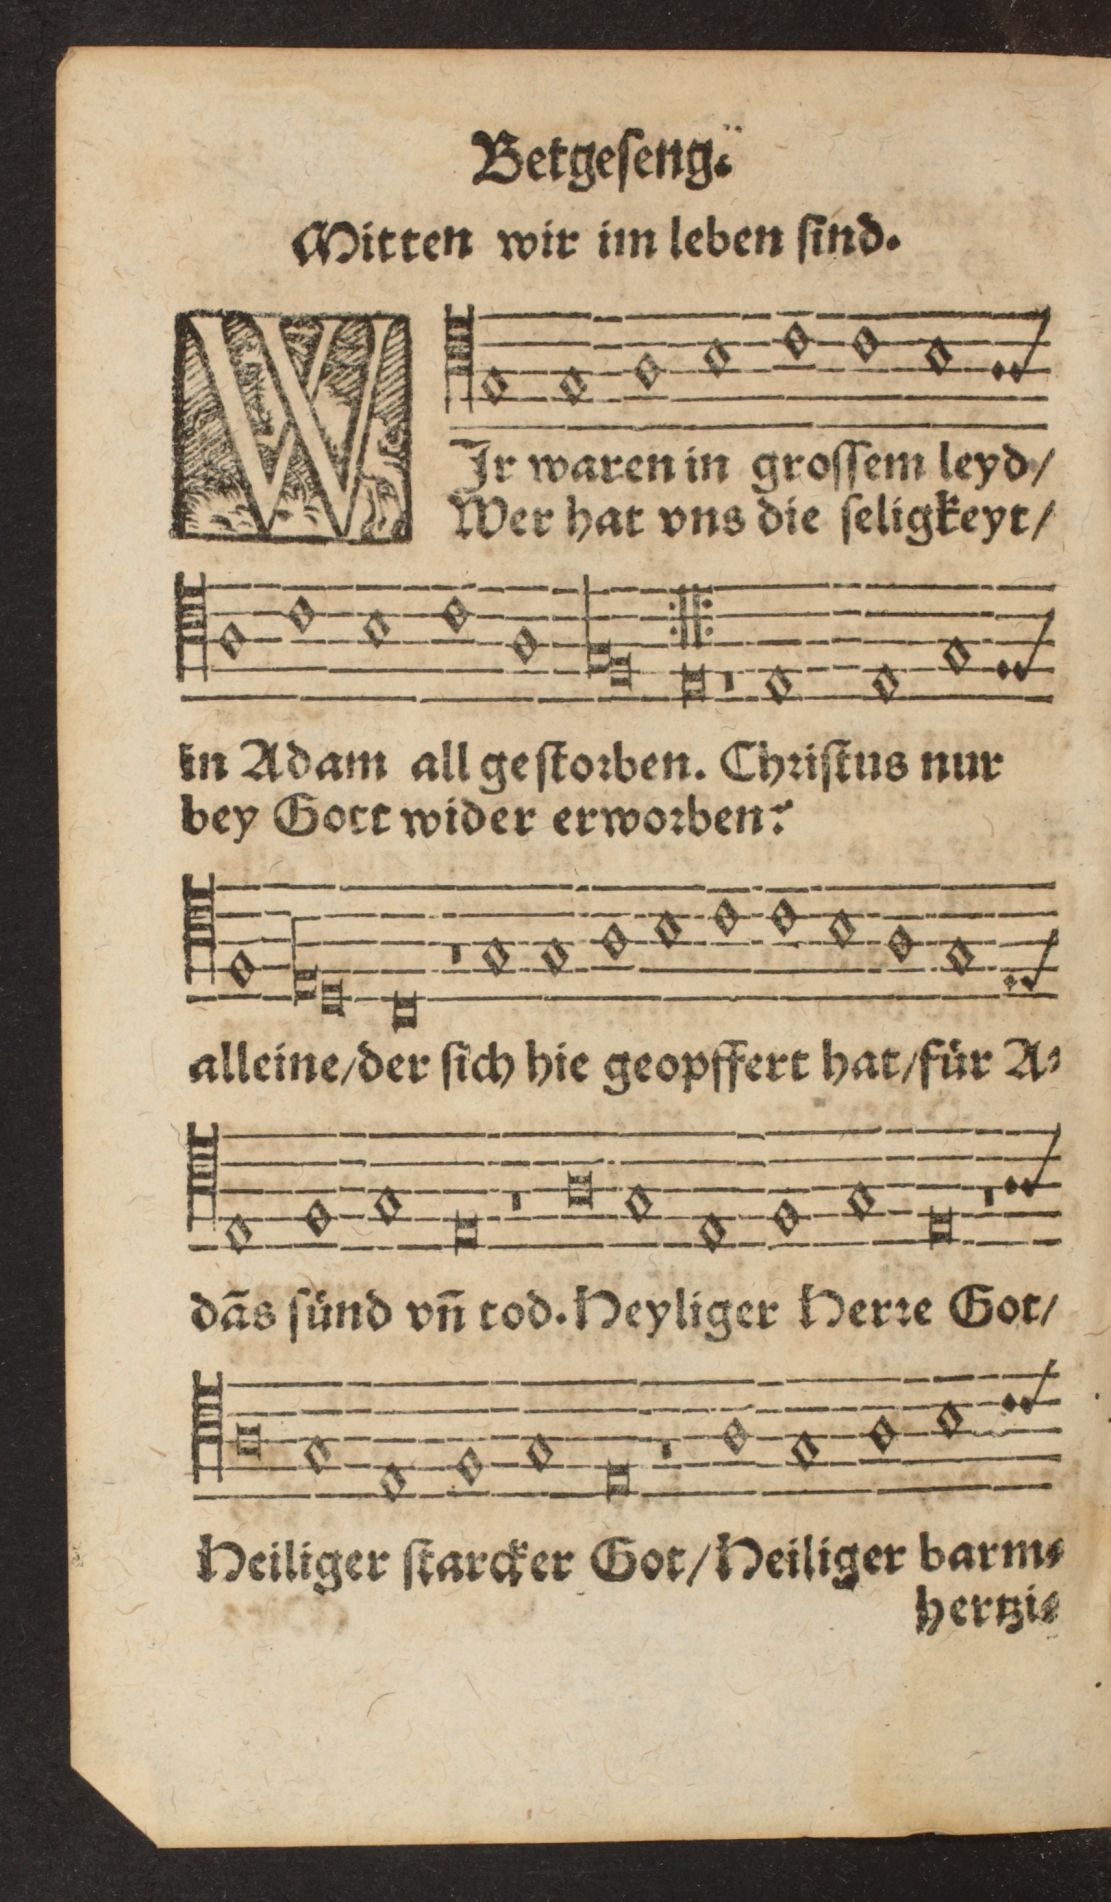 Betgeseng.
Mitten wir im leben sind.
WIr waren in grossem leyd/
Wer hat vns die seligkeyt/
in Adam all gestorben. Christus nur
bey Gott wider erworben?
alleine/der sich hie geopffert hat/für A⸗
dãs sünd vñ tod. Heyliger Herre Got/
Heiliger starcker Got/Heiliger barm⸗
hertzi⸗